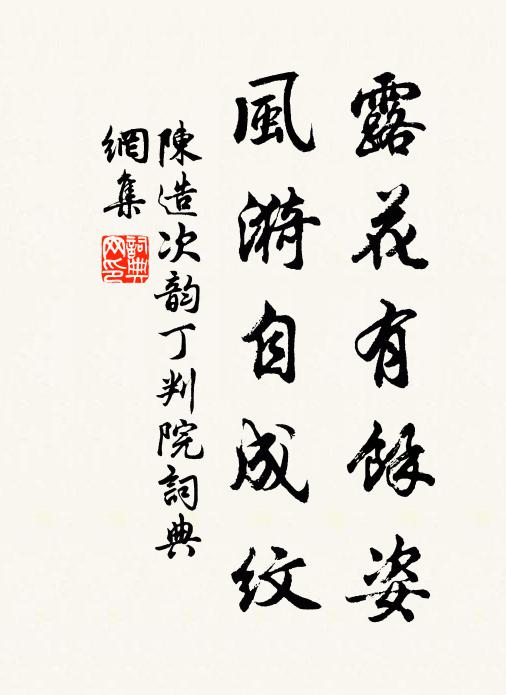 露花有餘姿
風漪自成紋
陳造次韵丁判院詞典
網集
詞典
网印